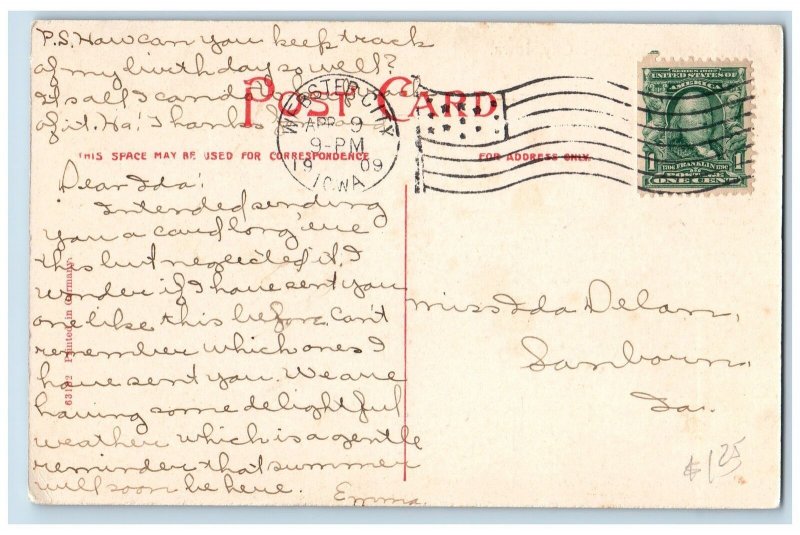 P.S. How can you keep track
of my birthday so well?
It's all I can do to keep track
of it. Ha! Thanks
POST CARD
WEBSTER CITY
APR 9
9-PM
1909
IOWA
SERIES 1902
UNITED STATES OF
AMERICA
1706 FRANKLIN 1790
POSTAGE
1 ONE CENT 1
THIS SPACE MAY BE USED FOR CORRESPONDENCE
FOR ADDRESS ONLY.
Dear Ida:
Intended sending
you a card long 'ere
this but neglected it. I
wonder if I have sent you
one like this before. Can't
remember which ones I
have sent you. We are
having some delightful
weather which is a gentle
reminder that summer
will soon be here.
Emma.
63192 Printed in Germany.
Miss Ida Delan,
Sanborn,
Ia.
$1.25